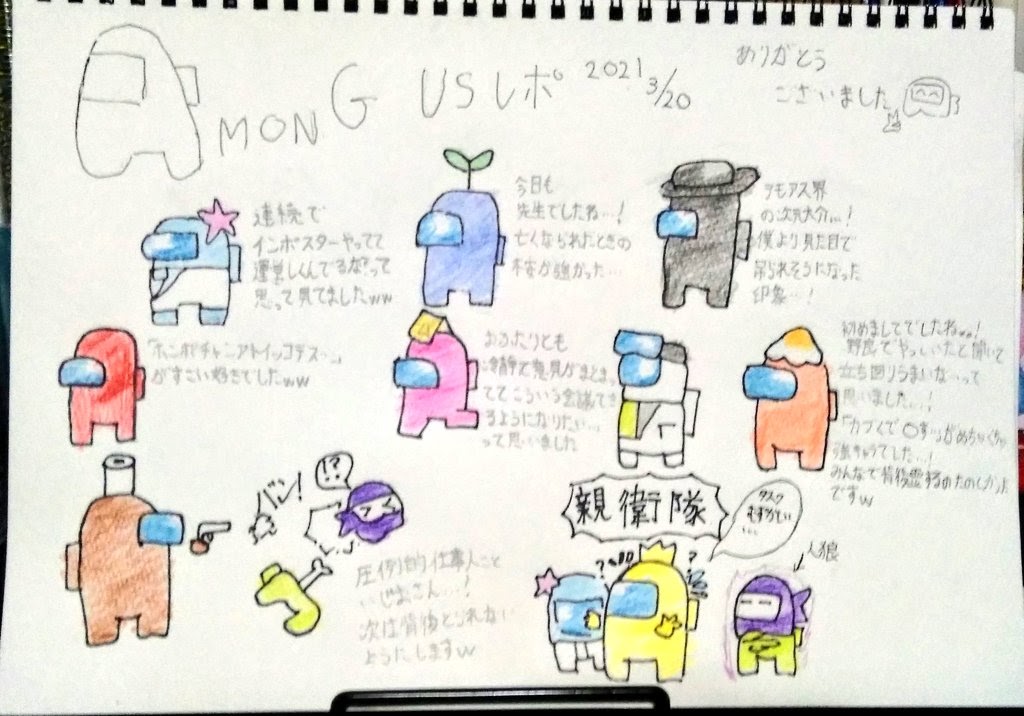 AMONG USレポ 2021 3/20
ありがとう
ございました
連続で
インポスターやってて
運営しくんでるな?って
思って見てましたww
今日も
先生でしたね…!
亡くなられたときの
不安が強かった…
アモアス界
の次元大介…!
僕より見た目で
吊られそうになった
印象…!
「ホンポチャンアトイッコデス…」
がすごい好きでしたww
おふたりとも
冷静で意見がまとまっ
ててこういう会議でき
るようになりたい…
って思いました
初めましてでしたね…!
野良でやっていたと聞いて
立ち回りうまいな…って
思いました…!
「カブくで〇す」がめちゃくちゃ
強キャラでした…!
みんなで背後霊するのたのしかった
ですw
バン!
!?
圧倒的仕事人こと
いじおさん…!
次は背後とられない
ようにしますw
親衛隊
タスク
むずかしい
…
?
?
人狼